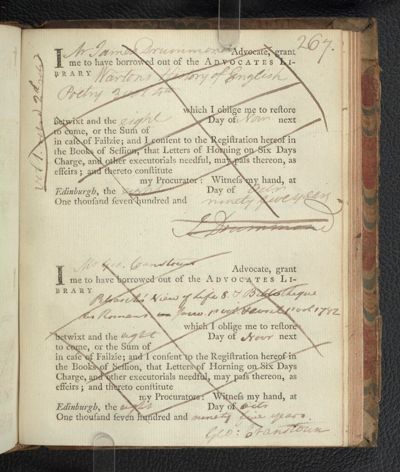 267.
I Mr James Drummond Advocate, grant
me to have borrowed out of the ADVOCATES LI-
BRARY Wartons History of English
Poetry
which I oblige me to restore
betwixt and the eight Day of next
to come, or the Sum of
in case of Failzie; and I consent to the Registration hereof in
the Books of Session, that Letters of Horning on Six Days
Charge, and other executorials needful, may pass thereon, as
effeirs; and thereto constitute
my Procurator: Witness my hand, at
Edinburgh, the Day of
One thousand seven hundred and ninety five years
J. Drummond
I Mr Geo. Cranstoun Advocate, grant
me to have borrowed out of the ADVOCATES LI-
BRARY
View of Life & Bibliotheque
des Romans 1782
which I oblige me to restore
betwixt and the eight Day of Novr next
to come, or the Sum of
in case of Failzie; and I consent to the Registration hereof in
the Books of Session, that Letters of Horning on Six Days
Charge, and other executorials needful, may pass thereon, as
effeirs; and thereto constitute
my Procurators: Witness my hand, at
Edinburgh, the Day of
One thousand seven hundred and ninety five years.
Geo: Cranstoun